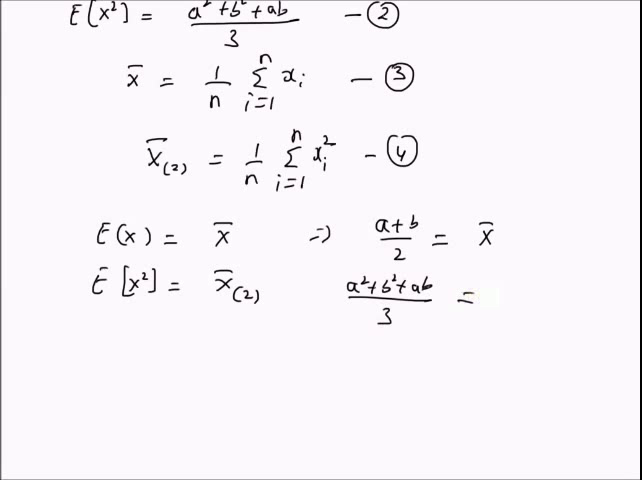 E[x²] = a²+b²+ab/3 —②
x̄ = 1/n Σ_{i=1}^{n} xᵢ —③
X̄₍₂₎ = 1/n Σ_{i=1}^{n} xᵢ² —④
E(x) = x̄ ⇒ a+b/2 = x̄
E[x²] = x̄₍₂₎ a²+b²+ab/3 =